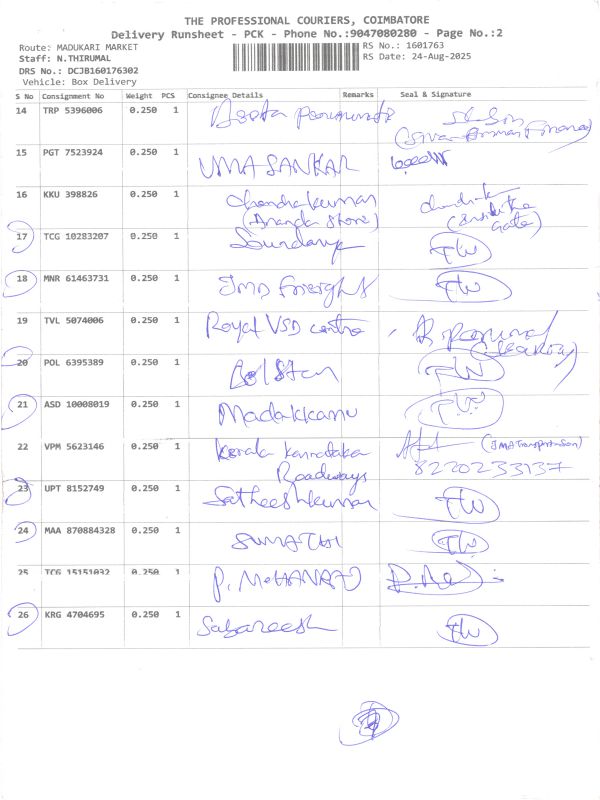 THE PROFESSIONAL COURIERS, COIMBATORE
Delivery Runsheet - PCK - Phone No.:9047080280 - Page No.:2
Route: MADUKARI MARKET
RS No.: 1601763
Staff: N.THIRUMAL
RS Date: 24-Aug-2025
DRS No.: DCJB160176302
Vehicle: Box Delivery
S No Consignment No Weight PCS Consignee Details Remarks Seal & Signature
14 TRP 5396006 0.250 1
15 PGT 7523924 0.250 1 UMA SANKAR
16 KKU 398826 0.250 1 Chandrakumar
(Ananda Store)
17 TCG 10283207 0.250 1 TW
18 MNR 61463731 0.250 1 JMD Freight TW
19 TVL 5074006 0.250 1 Royal VSD centre
20 POL 6395389 0.250 1 TW
21 ASD 10008019 0.250 1 Madakkanu TW
22 VPM 5623146 0.250 1 Kerala Karnataka
Roadways 8220233137
23 UPT 8152749 0.250 1 Satheeshkumar TW
24 MAA 870884328 0.250 1 SUMATHI TW
25 TCG 15151032 0.250 1
26 KRG 4704695 0.250 1 Sabareesh TW